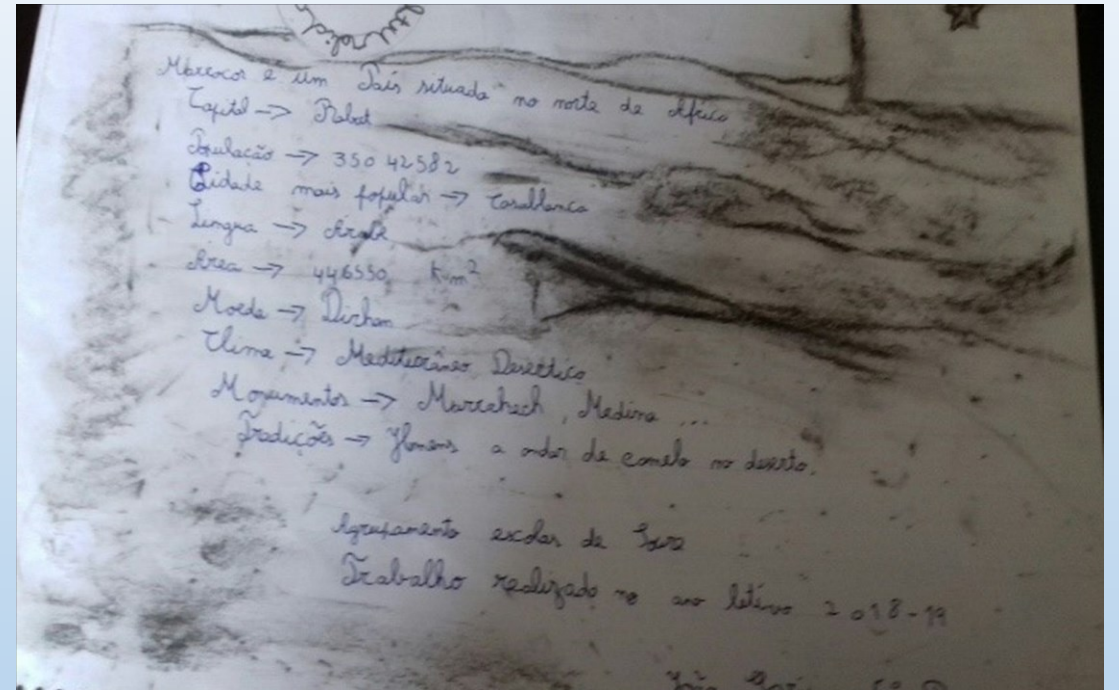 Marrocos é um País situado no norte de África
Capital -> Rabat
População -> 350 42582
Cidade mais popular -> Casablanca
Lingua -> Árabe
Área -> 446550 Km²
Moeda -> Dirham
Clima -> Mediterrâneo Desértico
Monumentos -> Marrakech, Medina ...
Tradições -> Homens a andar de camelo no deserto.
Agrupamento escolar de Soure
Trabalho realizado no ano letivo 2018-19
João